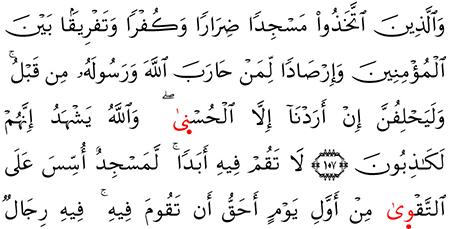 وَٱلَّذِينَ ٱتَّخَذُواْ مَسۡجِدٗا ضِرَارٗا وَكُفۡرٗا وَتَفۡرِيقَۢا بَيۡنَ
ٱلۡمُؤۡمِنِينَ وَإِرۡصَادٗا لِّمَنۡ حَارَبَ ٱللَّهَ وَرَسُولَهُۥ مِن قَبۡلُۚ
وَلَيَحۡلِفُنَّ إِنۡ أَرَدۡنَآ إِلَّا ٱلۡحُسۡنىٰۖ وَٱللَّهُ يَشۡهَدُ إِنَّهُمۡ
لَكَٰذِبُونَ ١٠٧ لَا تَقُمۡ فِيهِ أَبَدٗاۚ لَّمَسۡجِدٌ أُسِّسَ عَلَى
ٱلتَّقۡوىٰ مِنۡ أَوَّلِ يَوۡمٍ أَحَقُّ أَن تَقُومَ فِيهِۚ فِيهِ رِجَالٞ